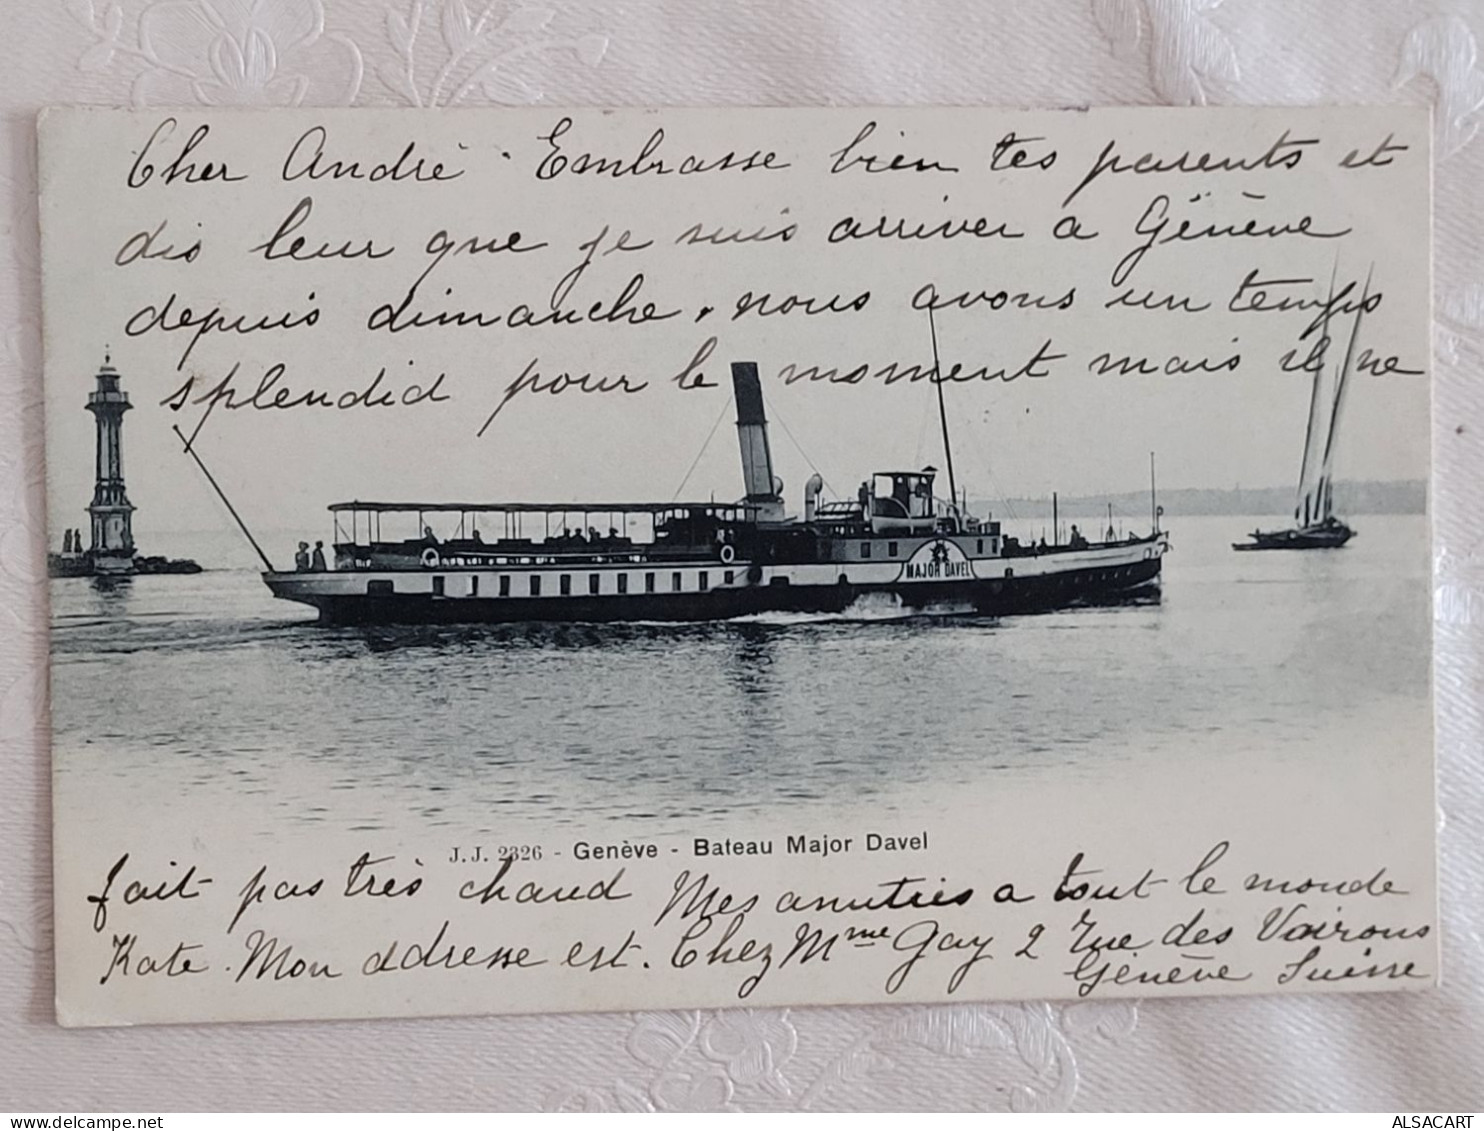 Cher André. Embrasse bien tes parents et
dis leur que je suis arriver a Génève
depuis dimanche, nous avons un temps
splendid pour le moment mais il ne
MAJOR DAVEL
J.J. 2326 - Genève - Bateau Major Davel
fait pas très chaud Mes amitiés a tout le monde
Kate. Mon addresse est. Chez Mme Gay 2 Rue des Voirons
Génève Suisse
www.delcampe.net
ALSACART